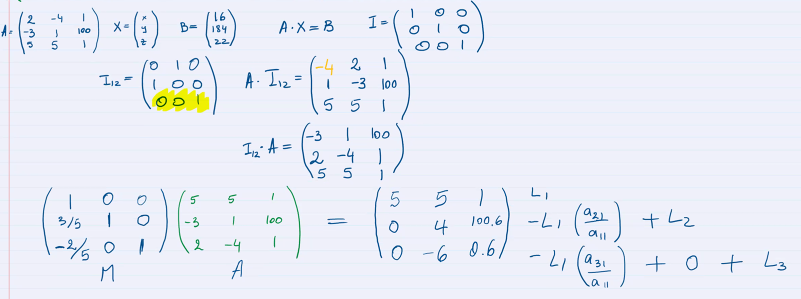 A = ( 2 -4 1 ; -3 1 100 ; 5 5 1 ) X = ( x ; y ; z ) B = ( 16 ; 184 ; 22 ) A · X = B I = ( 1 0 0 ; 0 1 0 ; 0 0 1 )
I12 = ( 0 1 0 ; 1 0 0 ; 0 0 1 ) A · I12 = ( -4 2 1 ; 1 -3 100 ; 5 5 1 )
I12 · A = ( -3 1 100 ; 2 -4 1 ; 5 5 1 )
( 1 0 0 ; 3/5 1 0 ; -2/5 0 1 ) ( 5 5 1 ; -3 1 100 ; 2 -4 1 ) = ( 5 5 1 ; 0 4 100.6 ; 0 -6 0.6 ) L1
-L1 ( a21 / a11 ) + L2
-L1 ( a31 / a11 ) + 0 + L3
M A